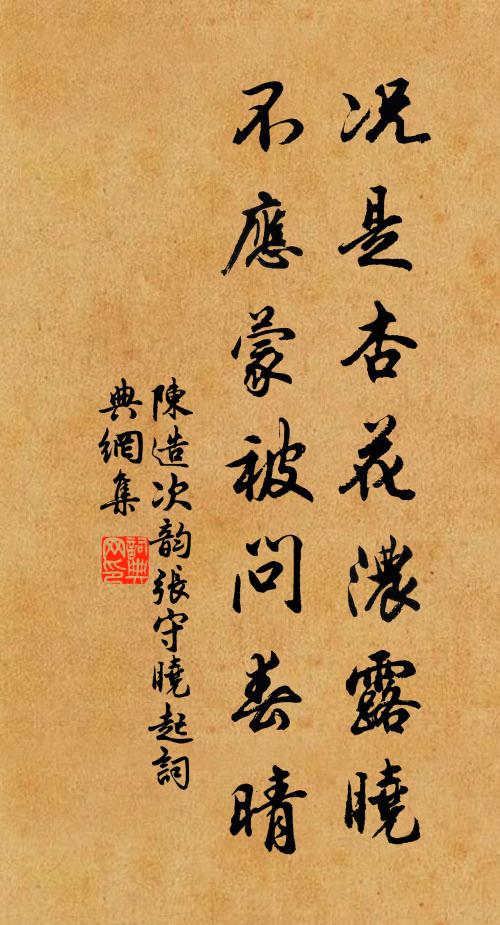 況是杏花濃露曉
不應蒙被問春晴
陳造次韵張守曉起詞
典網集
詞典
网印